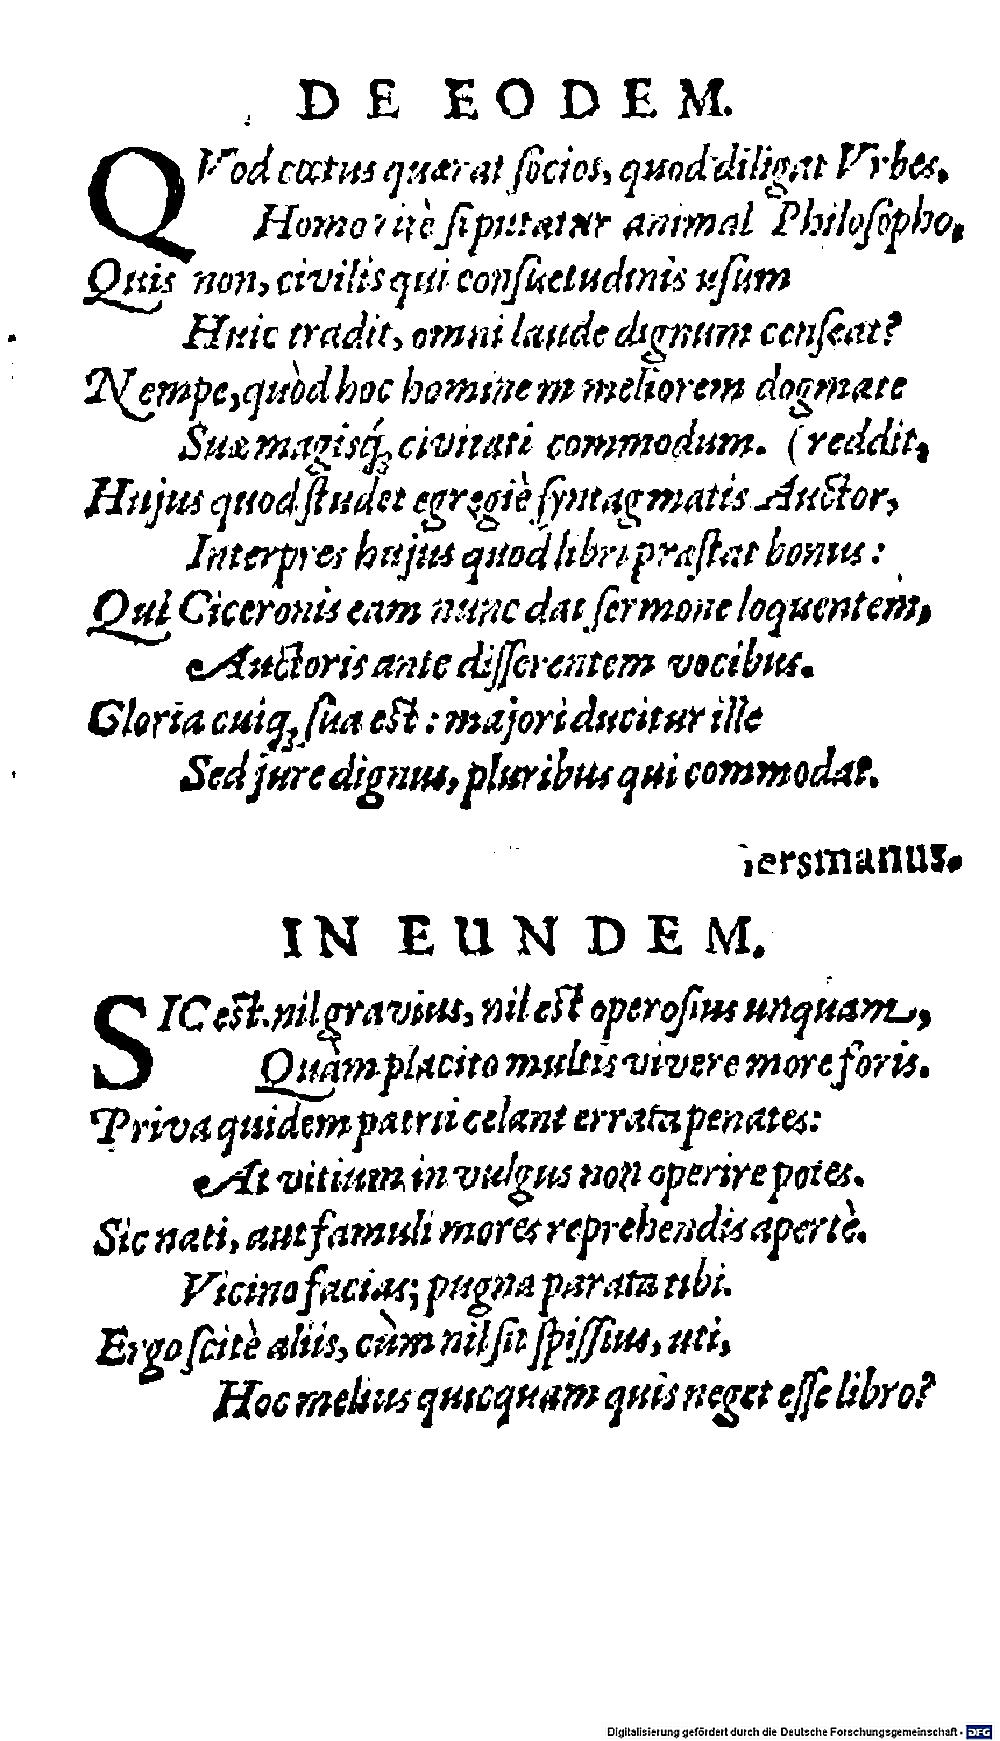 DE EODEM.
QVod cœtus quærat ſocios, quod diligat Vrbes.
Homo ritè ſi putatur animal Philoſopho,
Quis non, civilis qui conſuetudinis uſum
Huic tradit, omni laude dignum cenſeat?
Nempe, quòd hoc hominem meliorem dogmate
Suæ magisq́; civitati commodum. (reddit,
Hujus quod ſtudet egregiè ſyntagmatis Auctor,
Interpres hujus quod libri præſtat bonus:
Qui Ciceronis eam nunc dat ſermone loquentem,
Auctoris ante diſſerentem vocibus.
Gloria cuiq; ſua eſt: majori ducitur ille
Sed jure dignus, pluribus qui commodat.
ersmanus.
IN EUNDEM.
SIC eſt. nil gravius, nil eſt operoſius unquam,
Quàm placito multis vivere more foris.
Priva quidem patrii celant errata penates:
At vitium in vulgus non operire potes.
Sic nati, aut famuli mores reprehendis apertè.
Vicino facias; pugna parata tibi.
Ergo ſcitè aliis, cùm nil ſit ſpiſſius, uti,
Hoc melius quicquam quis neget eſſe libro?
Digitalisierung gefördert durch die Deutsche Forschungsgemeinschaft - DFG